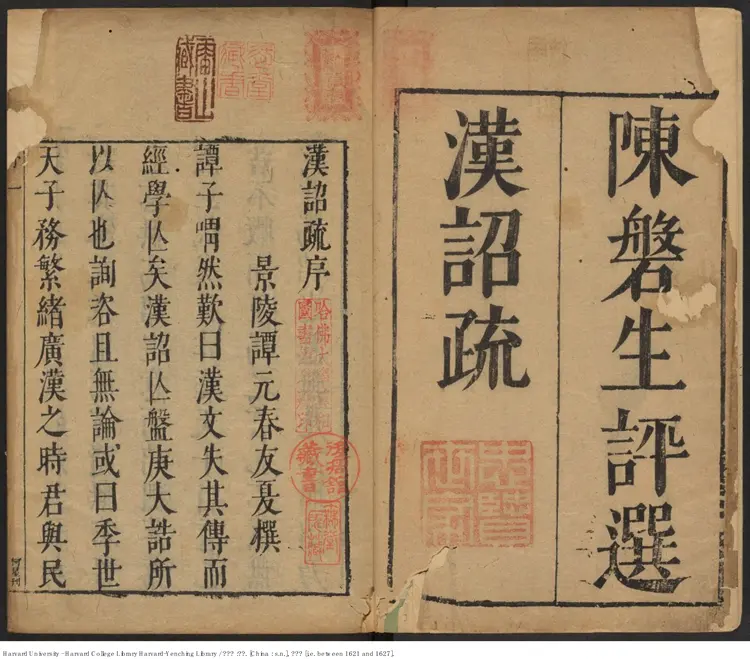 陳磐生評選
漢詔疏
漢詔疏序
景陵譚元春友夏撰
譚子喟然歎曰漢文失其傳而
經學亾矣漢詔亾盤庚大誥所
以亾也詢咨且無論或曰季世
天子務繁緒廣漢之時君與民
藏書
Harvard University - Harvard College Library Harvard-Yenching Library / ??? : ??. [China : s.n.], ??? [i.e. between 1621 and 1627].